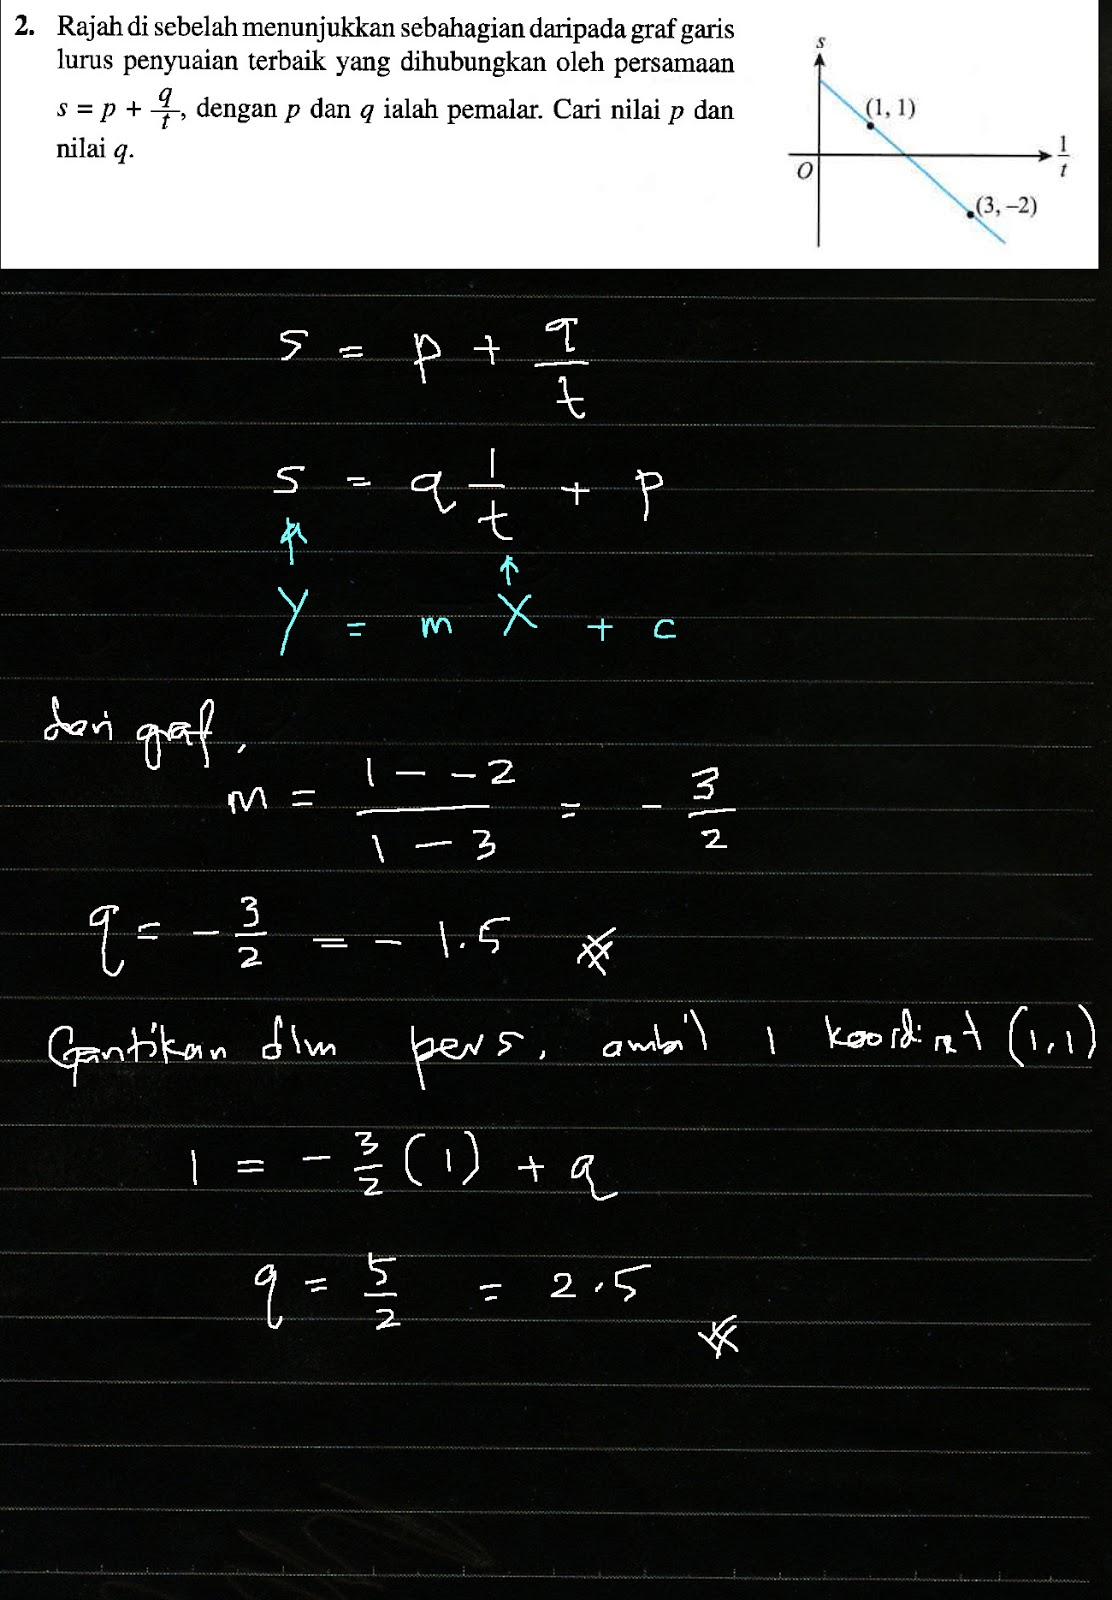 2. Rajah di sebelah menunjukkan sebahagian daripada graf garis
lurus penyuaian terbaik yang dihubungkan oleh persamaan
s = p + q/t, dengan p dan q ialah pemalar. Cari nilai p dan
nilai q.
s
(1, 1)
1/t
O
(3, –2)
s = p + q/t
s = q 1/t + p
Y = m X + c
dari graf,
m = (1 - -2)/(1 - 3) = - 3/2
q = - 3/2 = - 1.5
Gantikan dlm pers, ambil 1 koordinat (1,1)
1 = - 3/2 (1) + q
q = 5/2 = 2.5